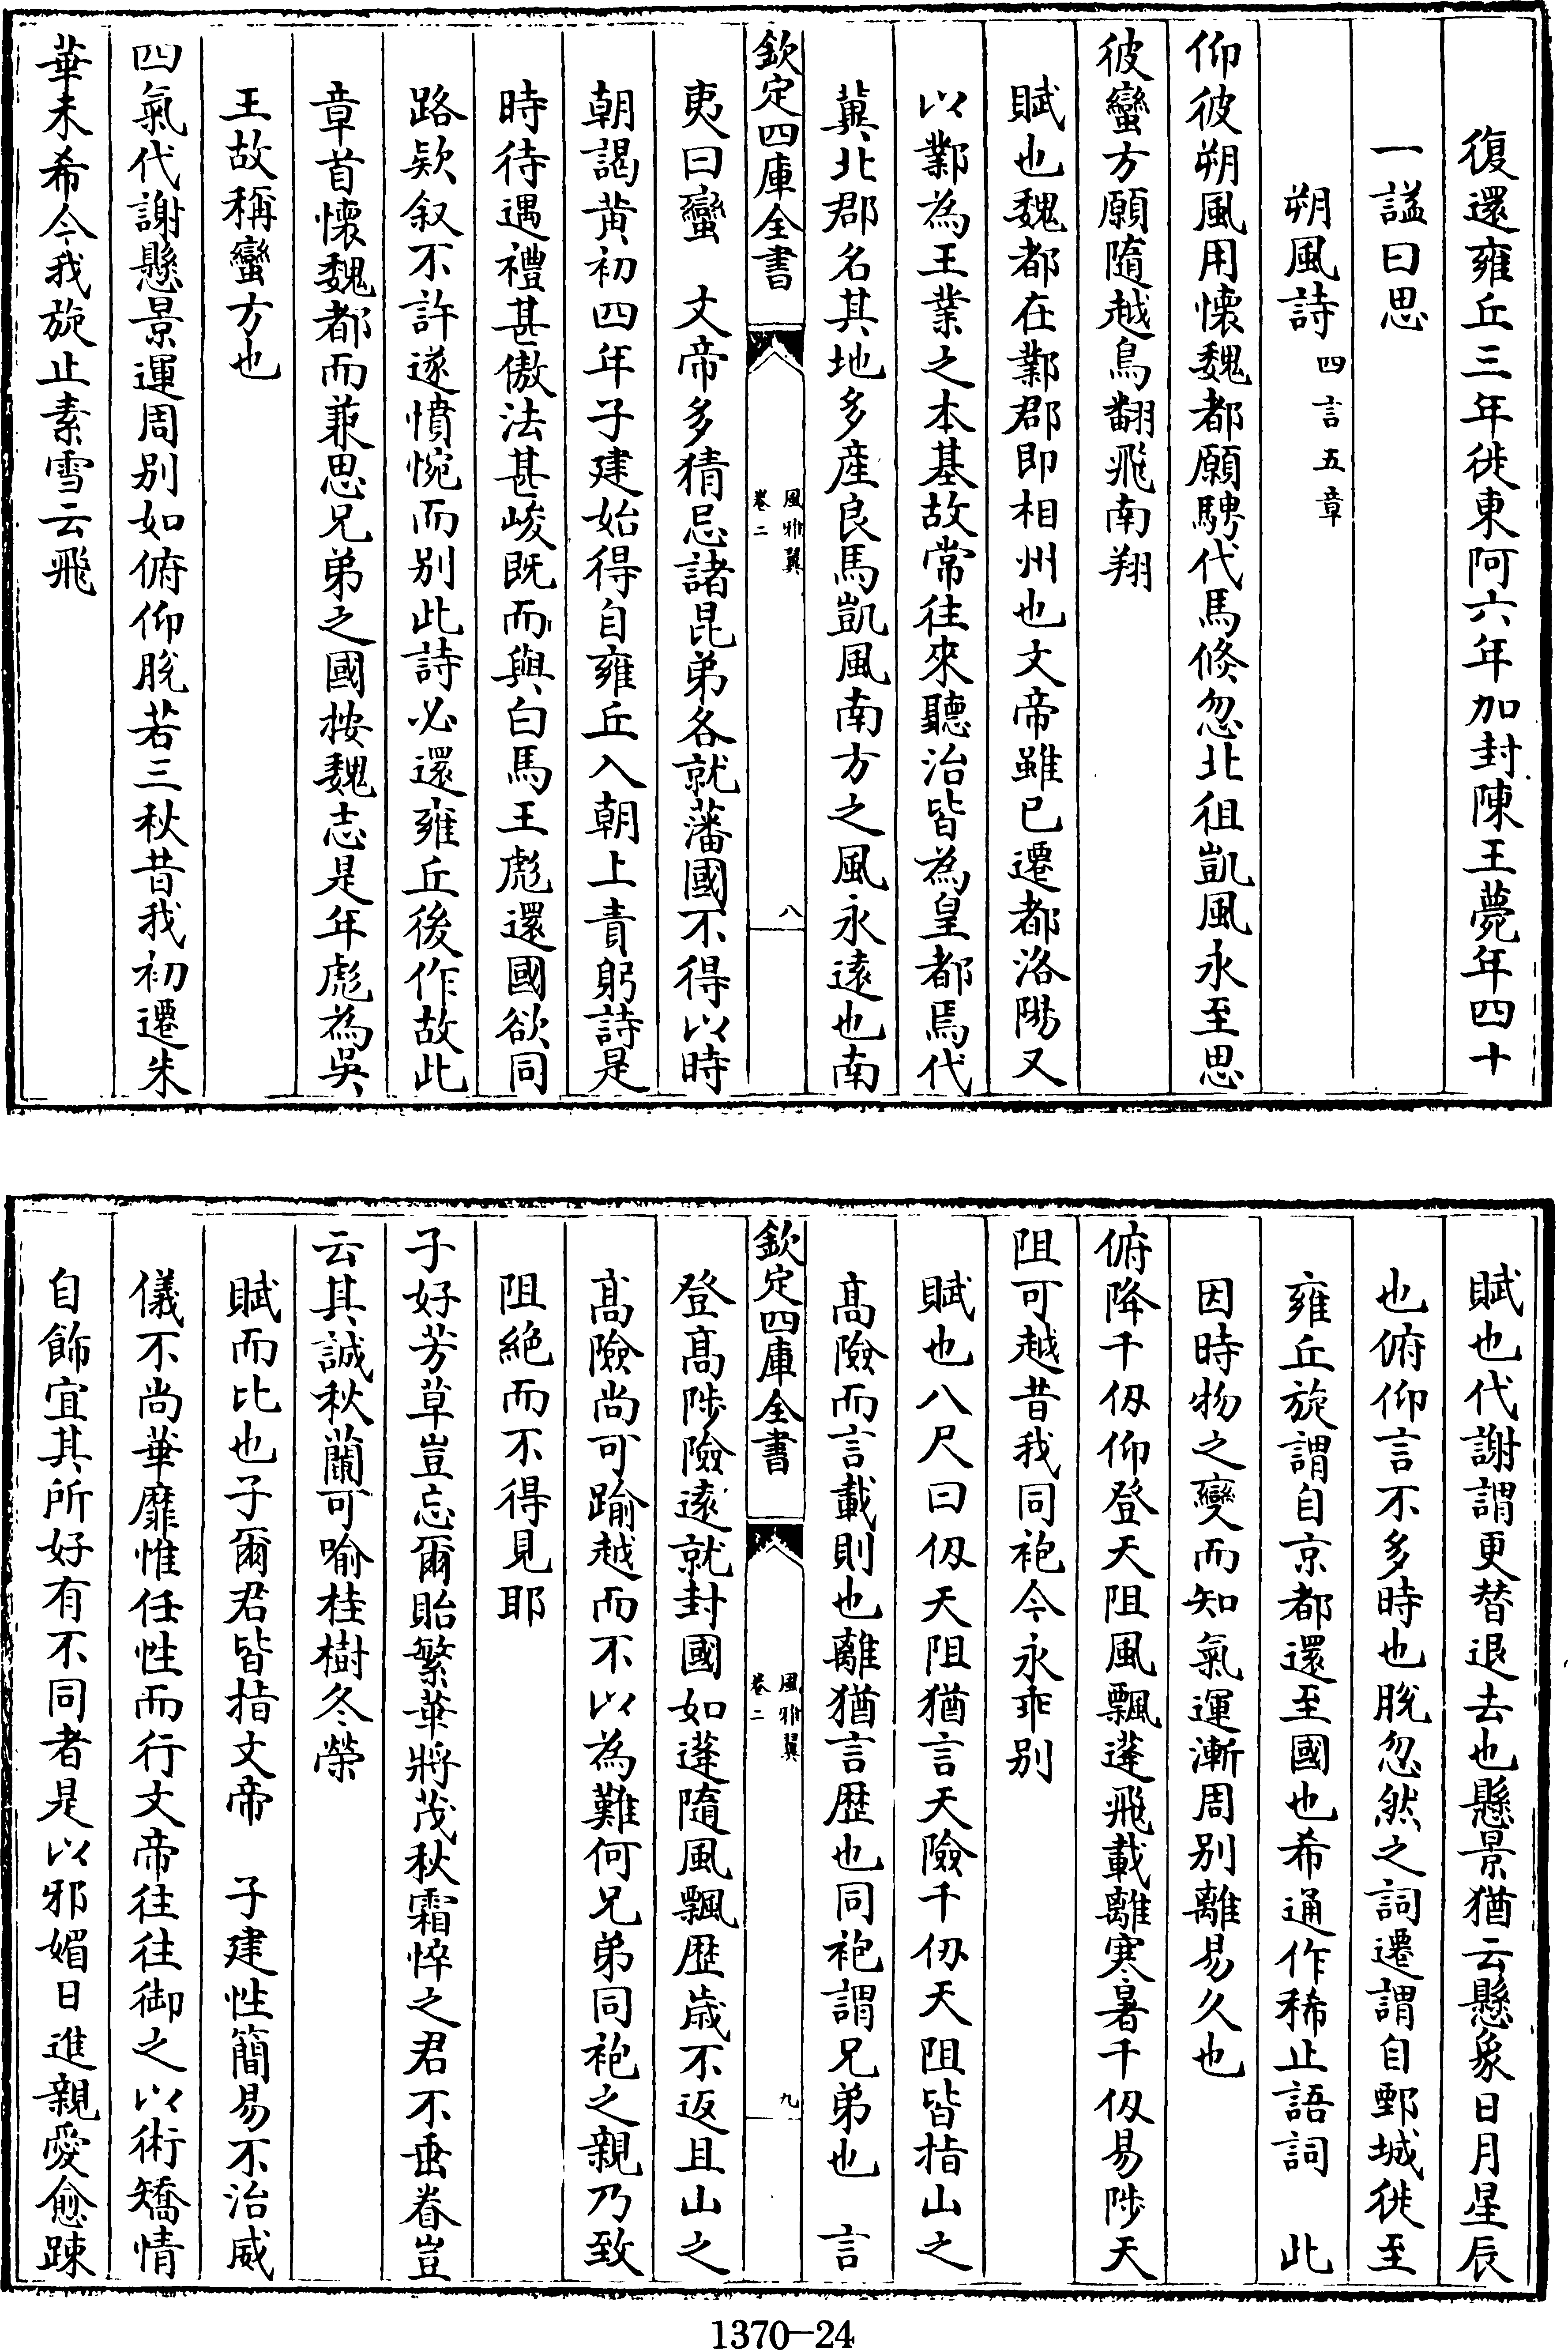 復還雍丘三年徙東阿六年加封陳王薨年四十
一謚曰思
朔風詩四言五章
仰彼朔風用懷魏都願騁代馬倏忽北徂凱風永至思
彼蠻方願隨越鳥翻飛南翔
賦也魏都在鄴郡即相州也文帝雖已遷都洛陽又
以鄴為王業之本基故常往來聽治皆為皇都焉代
冀北郡名其地多産良馬凱風南方之風永逺也南
欽定四庫全書
風雅翼
卷二
八
夷曰蠻　文帝多猜忌諸昆弟各就藩國不得以時
朝謁黄初四年子建始得自雍丘入朝上責躬詩是
時待遇禮甚傲法甚峻既而與白馬王彪還國欲同
路欵叙不許遂憤惋而别此詩必還雍丘後作故此
章首懷魏都而兼思兄弟之國按魏志是年彪為吳
王故稱蠻方也
四氣代謝懸景運周别如俯仰脫若三秋昔我初遷朱
華未希今我旋止素雪云飛
賦也代謝謂更替退去也懸景猶云懸象日月星辰
也俯仰言不多時也脫忽然之詞遷謂自鄄城徙至
雍丘旋謂自京都還至國也希通作稀止語詞　此
因時物之變而知氣運漸周别離易久也
俯降千仭仰登天阻風飄蓬飛載離寒暑千仭易陟天
阻可越昔我同袍今永乖别
賦也八尺曰仭天阻猶言天險千仭天阻皆指山之
髙險而言載則也離猶言歴也同袍謂兄弟也　言
欽定四庫全書
風雅翼
卷二
九
登髙陟險逺就封國如蓬隨風飄歴歳不返且山之
髙險尚可踰越而不以為難何兄弟同袍之親乃致
阻絶而不得見耶
子好芳草豈忘爾貽繁華將茂秋霜悴之君不垂眷豈
云其誠秋蘭可喻桂樹冬榮
賦而比也子爾君皆指文帝　子建性簡易不治威
儀不尚華靡惟任性而行文帝往往御之以術矯情
自飾宜其所好有不同者是以邪媚日進親愛愈踈
1370—24